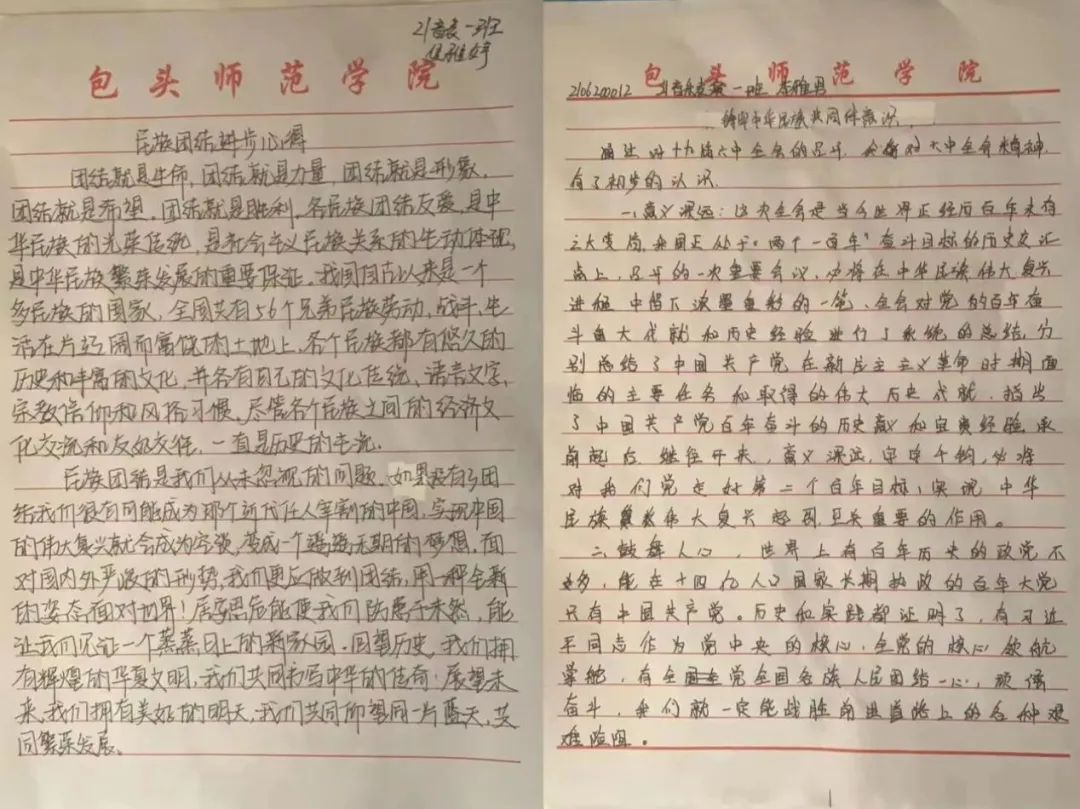 21音表一班
包头师范学院
民族团结进步心得
团结就是生命,团结就是力量,团结就是形象,
团结就是希望,团结就是胜利。各民族团结友爱,是中
华民族的光荣传统,是社会主义民族关系的生动体现,
是中华民族繁荣发展的重要保证。我国自古以来是一个
多民族的国家,全国共有56个兄弟民族劳动,战斗,生
活在片辽阔而富饶的土地上,各个民族都有悠久的
历史和丰富的文化,并各有自己的文化传统、语言文字、
宗教信仰和风俗习惯。尽管各个民族之间的经济文
化交流和友好交往,一直是历史的主流。
民族团结是我们从未忽视的问题。如果没有了团
结我们很有可能成为那个近代任人宰割的中国,实现中国
的伟大复兴就会成为空谈,变成一个遥遥无期的梦想。面
对国内外严峻的形势,我们更应做到团结,用一种全新
的姿态面对世界!居安思危能使我们防患于未然,能
让我们见证一个蒸蒸日上的新家园。回望历史,我们拥
有辉煌的华夏文明,我们共同书写中华的传奇;展望未
来,我们拥有美好的明天,我们共同仰望同一片蓝天,共
同繁荣发展。
包头师范学院
2106200012 21音乐表演一班 李雅男
铸牢中华民族共同体意识
通过对十九届六中全会的学习,我对六中全会精神
有了初步的认识。
一、意义深远:这次全会是当今世界正经历百年未有
之大变局,我国正处于"两个一百年"奋斗目标的历史交汇
点上,召开的一次重要会议,必将在中华民族伟大复兴
进程中留下浓墨重彩的一笔。全会对党的百年奋
斗重大成就和历史经验进行了系统的总结,分
别总结了中国共产党在新民主主义革命时期面
临的主要任务和取得的伟大历史成就,指出
了中国共产党百年奋斗的历史意义和宝贵经验,承
前起后,继往开来,意义深远,字字千钧,必将
对我们党走好第二个百年目标,实现中华
民族伟大复兴起到至关重要的作用。
二、鼓舞人心,世界上有百年历史的政党不
多,能在十四亿人口国家长期执政的百年大党
只有中国共产党。历史和实践都证明了,有习近
平同志作为党中央的核心、全党的核心领航
掌舵,有全党全国各族人民团结一心,顽强
奋斗,我们就一定能战胜前进道路上的各种艰
难险阻。
1